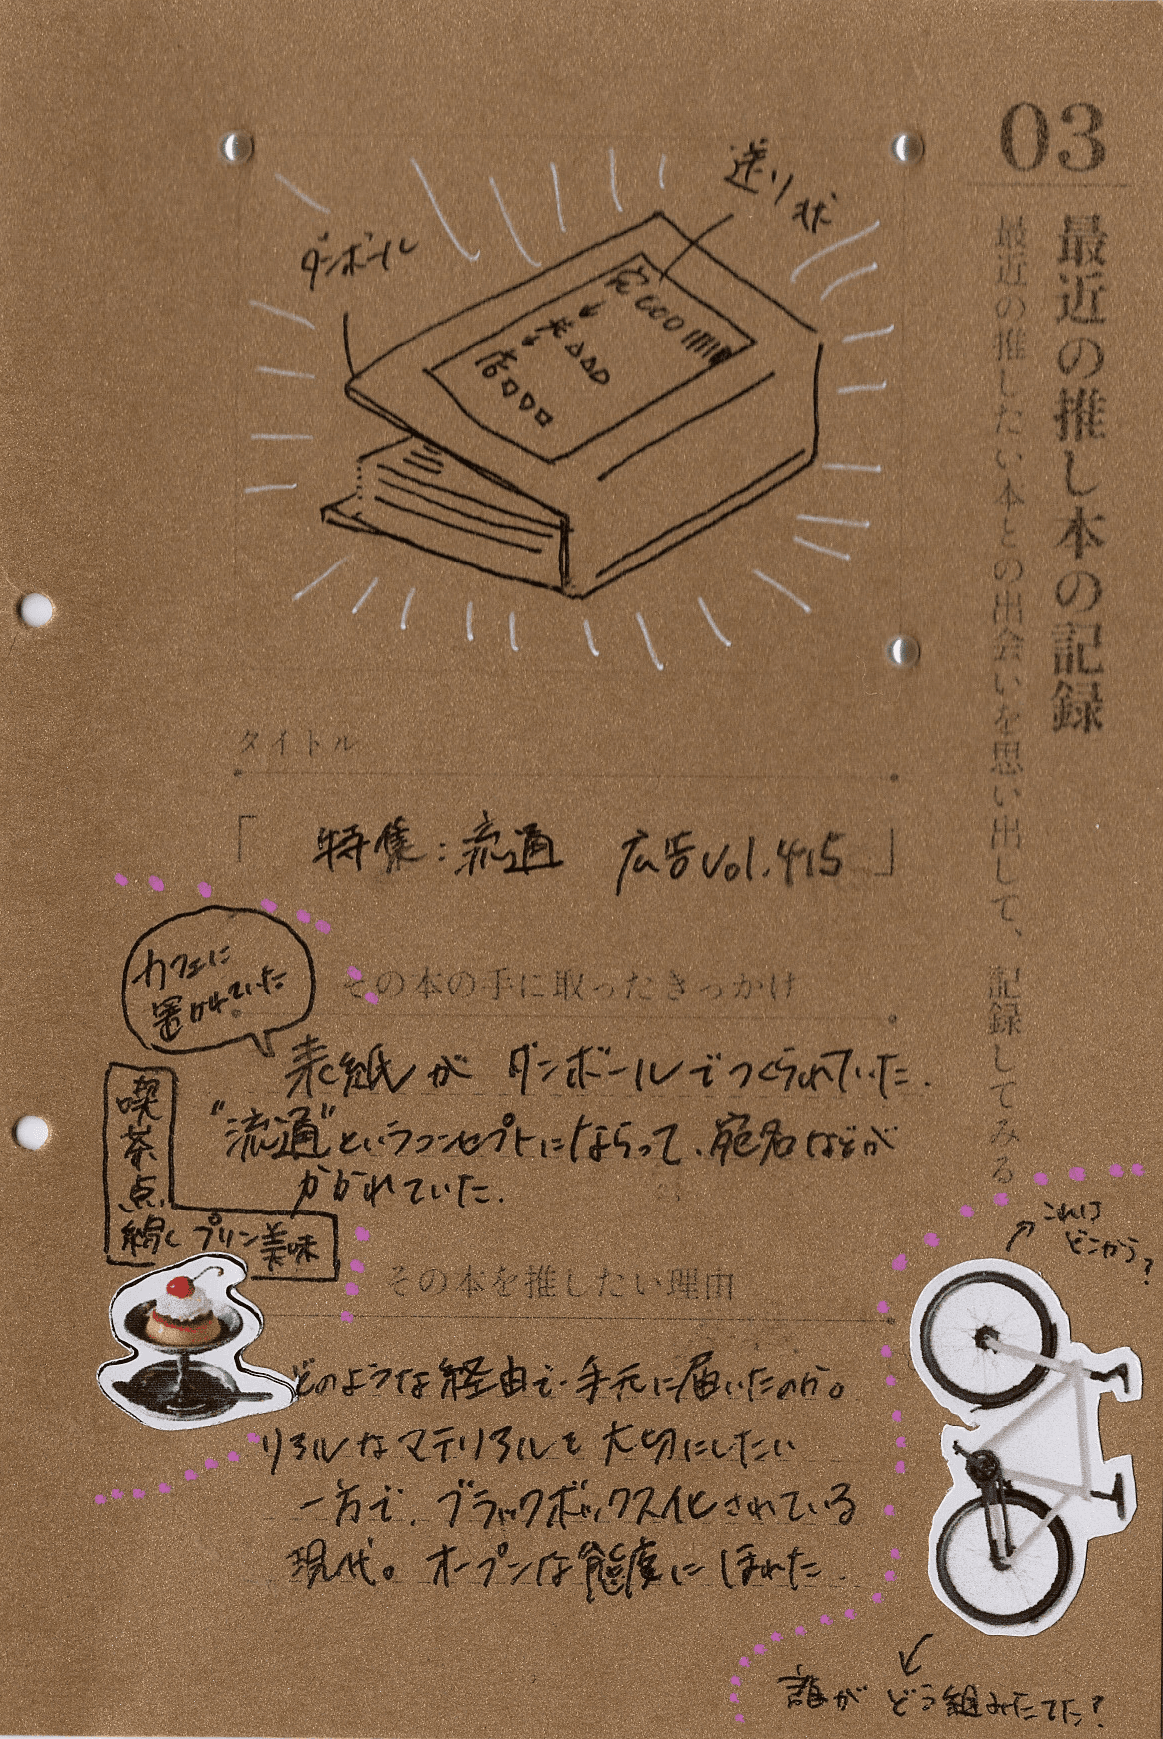 03
最近の推し本の記録
最近の推したい本との出会いを思い出して、記録してみる
送り状
ダンボール
宛
米
店
タイトル
「特集:流通 広告Vol.415」
その本の手に取ったきっかけ
カフェに
置かれていた
表紙が ダンボールでつくられていた.
"流通"というコンセプトにならって、宛名などが
かかれていた.
喫茶点
綴く プリン美味
その本を推したい理由
どのような経由で手元に届いたのか。
リアルなマテリアルを大切にしたい
一方で、ブラックボックス化されている
現代。オープンな態度に ほれた.
これは
どこから?
誰が どう組みたてた?